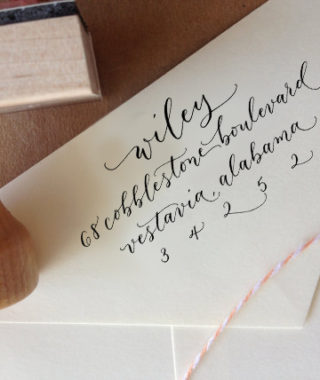 wiley
68 cobblestone boulevard
vestavia, alabama
3 4 2 5 2